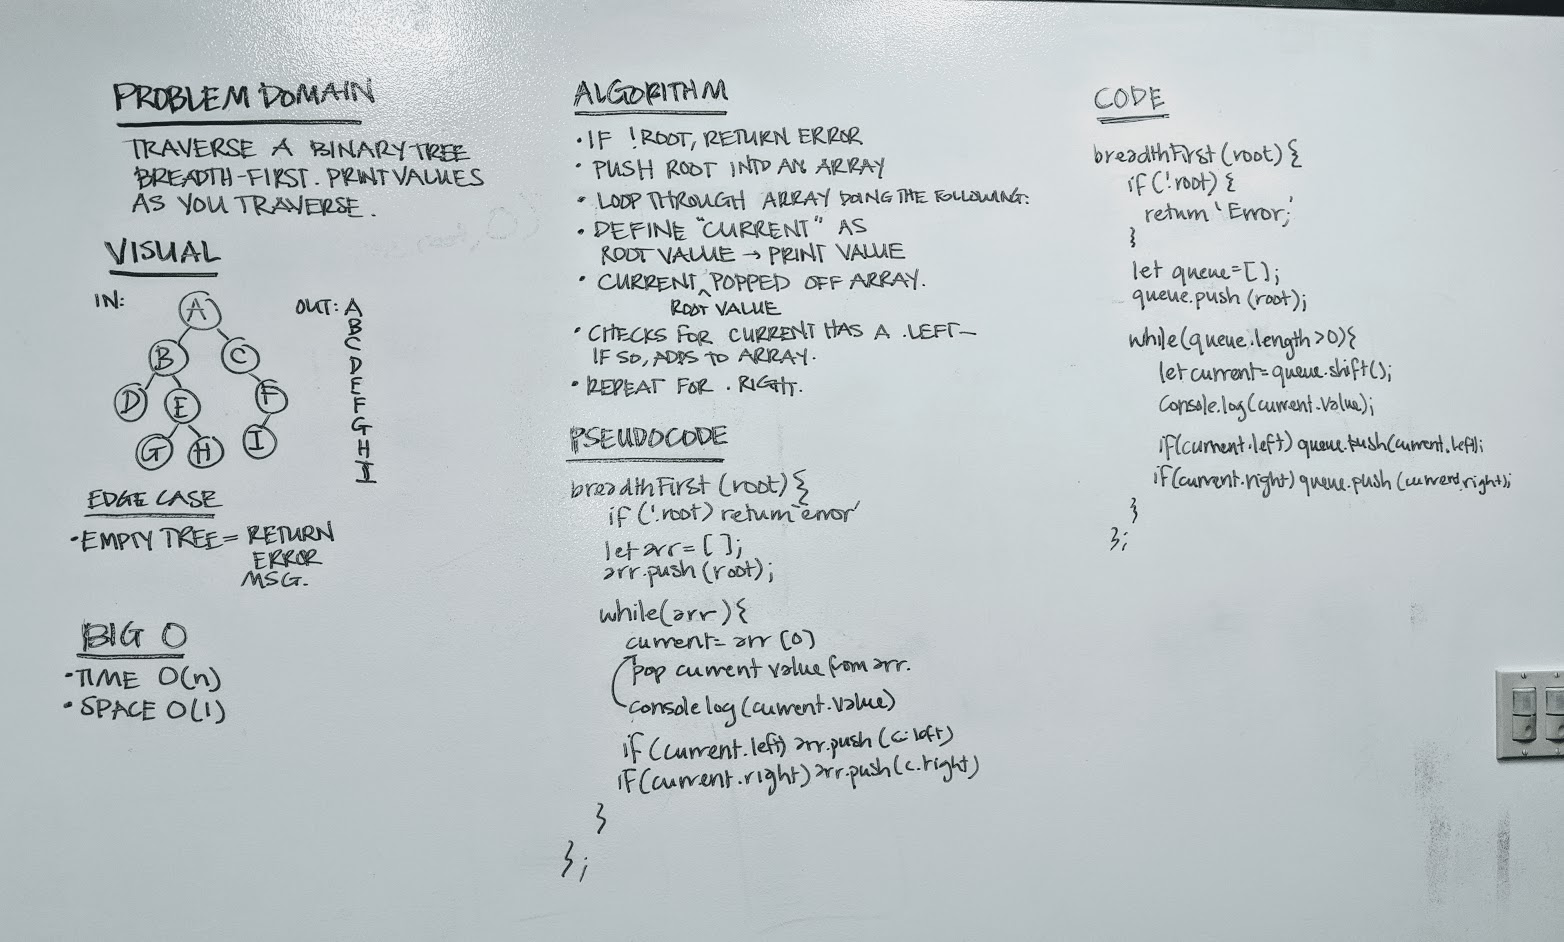 PROBLEM DOMAIN
TRAVERSE A BINARY TREE
BREADTH-FIRST. PRINT VALUES
AS YOU TRAVERSE.
VISUAL
IN:
A
B C
D E F
G H I
OUT: A
B
C
D
E
F
G
H
I
EDGE CASE
• EMPTY TREE = RETURN
ERROR
MSG.
BIG O
• TIME O(n)
• SPACE O(1)
ALGORITHM
• IF !ROOT, RETURN ERROR
• PUSH ROOT INTO AN ARRAY
• LOOP THROUGH ARRAY DOING THE FOLLOWING:
• DEFINE "CURRENT" AS
ROOT VALUE → PRINT VALUE
• CURRENT ^ POPPED OFF ARRAY.
ROOT VALUE
• CHECKS FOR CURRENT HAS A .LEFT—
IF SO, ADDS TO ARRAY.
• REPEAT FOR .RIGHT.
PSEUDOCODE
breadthFirst (root) {
if (!root) return 'error'
let arr = [ ];
arr.push (root);
while(arr) {
current = arr [0]
pop current value from arr.
console log (current.value)
if (current.left) arr.push (c.left)
if (current.right) arr.push (c.right)
}
};
CODE
breadthFirst (root) {
if (!root) {
return 'Error;'
}
let queue = [ ];
queue.push (root);
while(queue.length > 0){
let current = queue.shift();
Console.log(current.value);
if(current.left) queue.push(current.left);
if(current.right) queue.push (current.right);
}
};